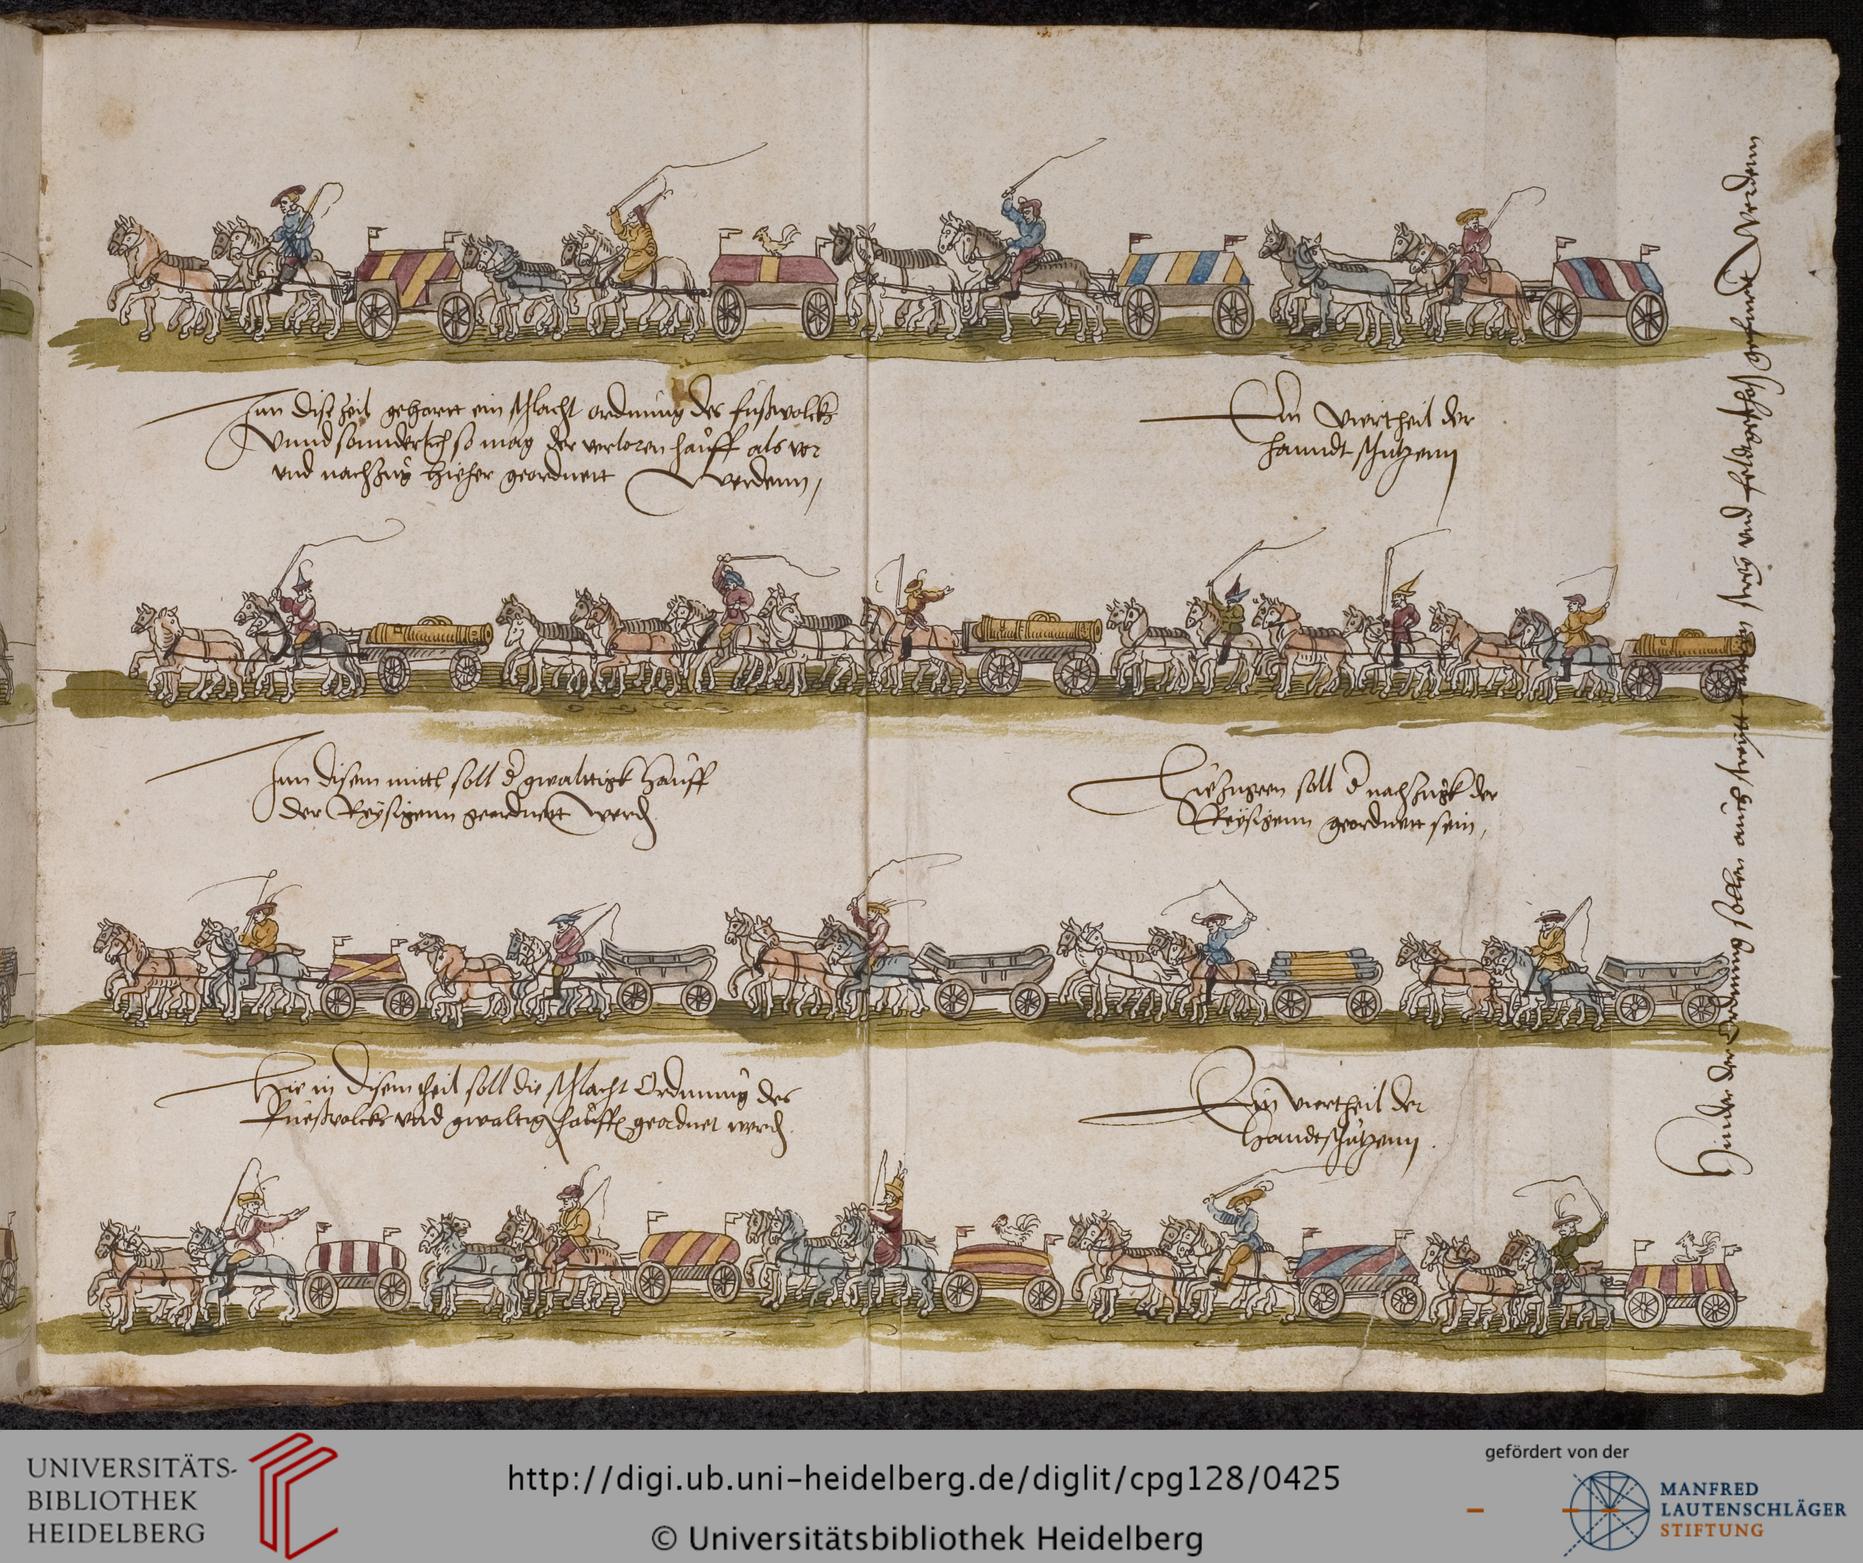 Inn dise Zeil gehorett ein schlacht ordnung des fußvolcks
Vnnd sonnderlich so mag der verloren hauff als vor
vnd nachzug hieher geordnett Werdenn,
Ein Viertheil der
hanndt schützenn
Inn disem mittl soll d gwalttigk hauff
der Reysigenn geordnett werd
Hiezugeen soll d nachzugk der
Reysigenn geordnett sein,
Hie in disem theil soll die schlacht Ordnung des
Fueßvolcks vnd gwaltig hauff geordnet werd
Ein viertheil der
Handtschützenn.
Hinder der Ordnung sollen auch vnd geordnet Werdenn
UNIVERSITÄTS-
BIBLIOTHEK
HEIDELBERG
http://digi.ub.uni-heidelberg.de/diglit/cpg128/0425
© Universitätsbibliothek Heidelberg
gefördert von der
MANFRED
LAUTENSCHLÄGER
STIFTUNG